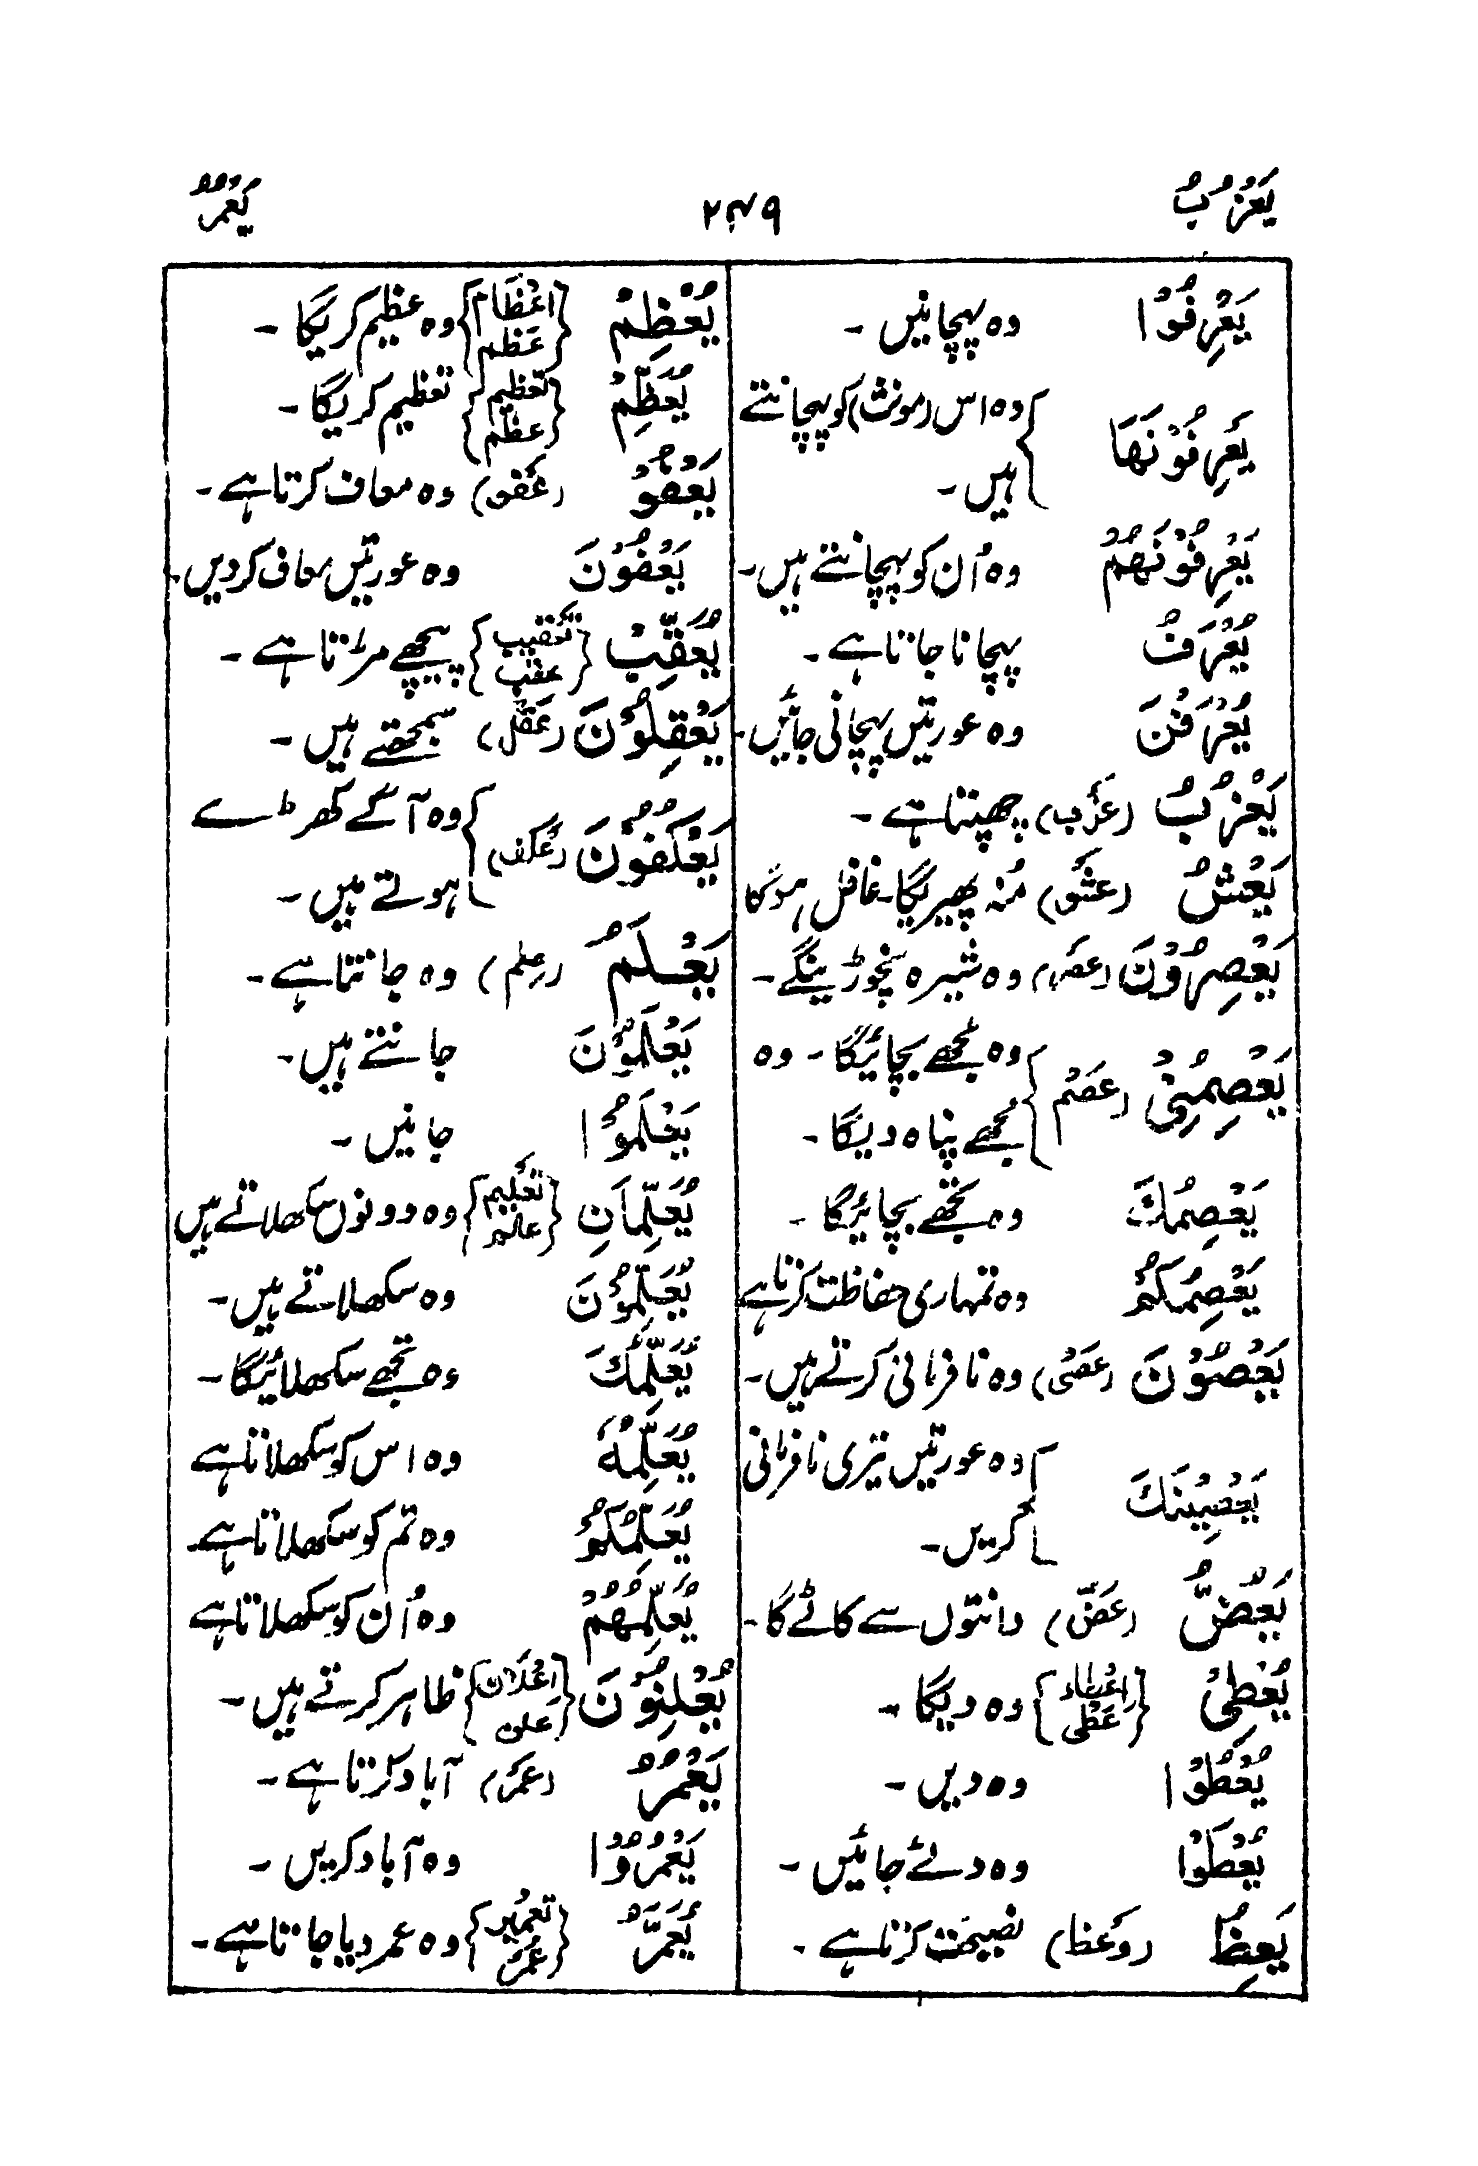 يَعْزُبُ ۲۴۹ يَعْمُرُ
يَعْرِفُوْا وہ پہچانیں ۔
يَعْرِفُوْنَهَا وہ اس (مونث) کو پہچانتے
ہیں ۔
يَعْرِفُوْنَهُمْ وہ اُن کو پہچانتے ہیں ۔
يُعْرَفُ پہچانا جاتا ہے ۔
يُعْرَفْنَ وہ عورتیں پہچانی جائیں ۔
يَعْزُبُ (عَزَب) چھپتا ہے ۔
يَعْشُ (عَشَو) مُنہ پھیریگا ۔ غافل ہوگا
يَعْصِرُوْنَ (عَصَر) وہ شیرہ نچوڑینگے ۔
يَعْصِمُنِيْ (عَصَمَ) وہ مجھے بچائیگا ۔ وہ
مجھے پناہ دیگا ۔
يَعْصِمُكَ وہ تجھے بچائیگا ۔
يَعْصِمُكُمْ وہ تمہاری حفاظت کرتا ہے
يَعْصُوْنَ (عَصَى) وہ نافرمانی کرتے ہیں ۔
يَعْصِيْنَكَ وہ عورتیں تیری نافرمانی
کریں ۔
يَعَضُّ (عَضَّ) دانتوں سے کاٹے گا ۔
يُعْطِيْ (اعْطَاء عَطَى) وہ دیگا ۔
يُعْطُوْا وہ دیں ۔
يُعْطَوْا وہ دئے جائیں ۔
يَعِظُ (وَعَظ) نصیحت کرتا ہے ۔
يُعْظِمْ (اعْظَام عَظَم) وہ عظیم کریگا ۔
يُعَظِّمْ (تعظیم عظّم) تعظیم کریگا ۔
يَعْفُوْ (عَفَو) وہ معاف کرتا ہے ۔
يَعْفُوْنَ وہ عورتیں معاف کردیں ۔
يُعَقِّبْ (تَعْقِيب عقّب) پیچھے مڑتا ہے ۔
يَعْقِلُوْنَ (عَقَل) سمجھتے ہیں ۔
يَعْكُفُوْنَ (عَكَف) وہ آگے کھڑے
ہوتے ہیں ۔
يَعْلَمُ (عِلم) وہ جانتا ہے ۔
يَعْلَمُوْنَ جانتے ہیں ۔
يَعْلَمُوْا جانیں ۔
يُعَلِّمَانِ (تَعْلِيم علّم) وہ دونوں سکھلاتے ہیں
يُعَلِّمُوْنَ وہ سکھلاتے ہیں ۔
يُعَلِّمُكَ وہ تجھے سکھلائیگا ۔
يُعَلِّمُهُ وہ اس کو سکھلاتا ہے
يُعَلِّمُكُمْ وہ تم کو سکھلاتا ہے
يُعَلِّمُهُمْ وہ اُن کو سکھلاتا ہے
يُعْلِنُوْنَ (اِعْلَان علن) ظاہر کرتے ہیں ۔
يَعْمُرُ (عَمَرَ) آباد کرتا ہے ۔
يَعْمُرُوْا وہ آباد کریں ۔
يُعَمَّرُ (تعمیر عمّر) وہ عمر دیا جاتا ہے ۔